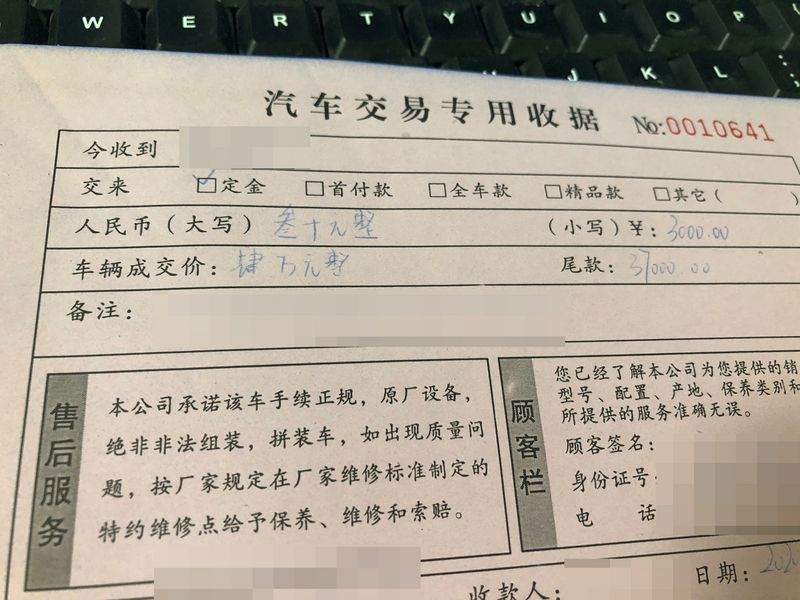 W E R T Y U I O P
J K L
汽车交易专用收据 №:0010641
今收到
交来 ☑定金 □首付款 □全车款 □精品款 □其它( )
人民币(大写) 叁千元整 (小写)¥: 3000.00
车辆成交价: 肆万元整 尾款: 37000.00
备注:
售后服务
本公司承诺该车手续正规,原厂设备,
绝非非法组装,拼装车,如出现质量问
题,按厂家规定在厂家维修标准制定的
特约维修点给予保养、维修和索赔。
顾客栏
您已经了解本公司为您提供的销
型号、配置、产地、保养类别和
所提供的服务准确无误。
顾客签名:
身份证号:
电 话
收款人:
日期: 202